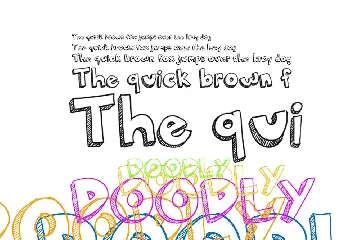 The quick brown fox jumps over the lazy dog
The quick brown fox jumps over the lazy dog
The quick brown fox jumps over the lazy dog
The quick brown f
The qui
DOODLY
DOODLY